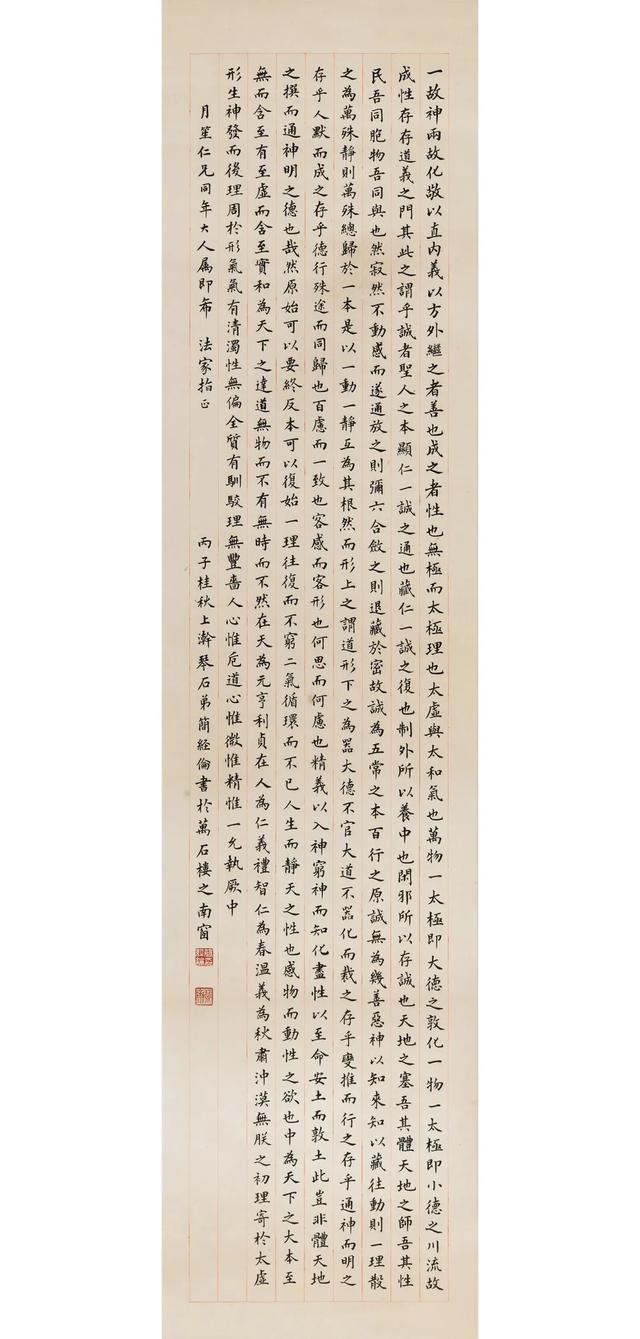 一故神兩故化敬以直內義以方外繼之者善也成之者性也無極而太極理也太虛與太和氣也萬物一太極即大德之敦化一物一太極即小德之川流故
成性存存道義之門其此之謂乎誠者聖人之本顯仁一誠之通也藏仁一誠之復也制外所以養中也閑邪所以存誠也天地之塞吾其體天地之師吾其性
民吾同胞物吾同與也然寂然不動感而遂通放之則彌六合斂之則退藏於密故誠為五常之本百行之原誠無為幾善惡神以知來知以藏往動則一理散
之為萬殊靜則萬殊總歸於一本是以一動一靜互為其根然而形上之謂道形下之為器大德不官大道不器化而裁之存乎變推而行之存乎通神而明之
存乎人默而成之存乎德行殊途而同歸也百慮而一致也容感而客形也何思而何慮也精義以入神窮神而知化盡性以至命安土而敦土此豈非體天地
之撰而通神明之德也哉然原始可以要終反本可以復始一理往復而不窮二氣循環而不已人生而靜天之性也感物而動性之欲也中為天下之大本至
無而含至有至虛而含至實和為天下之達道無物而不有無時而不然在天為元亨利貞在人為仁義禮智仁為春溫義為秋肅沖漠無朕之初理寄於太虛
形生神發而後理周於形氣氣有清濁性無偏全質有馴駁理無豐嗇人心惟危道心惟微惟精惟一允執厥中
月笙仁兄同年大人屬即希 法家指正
丙子桂秋上澣琴石弟簡經倫書於萬石樓之南窗